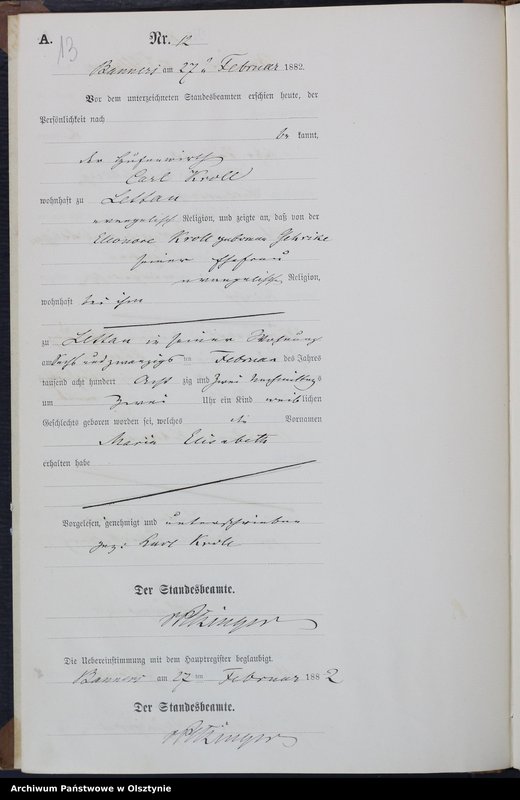 A. 13 Nr. 12
Banners am 27 Februar 1882.
Vor dem unterzeichneten Standesbeamten erschien heute, der
Persönlichkeit nach
be kannt,
der Hufenwirth
Carl Kroll
wohnhaft zu Lettau
evangelisch Religion, und zeigte an, daß von der
Eleonore Kroll geborene
seiner Ehefrau
evangelischer Religion,
wohnhaft bei ihm
zu Lettau in seiner Wohnung
am sechs und zwanzigs ten Februar des Jahres
tausend acht hundert Acht zig und Zwei Nachmittags
um Zwei Uhr ein Kind weib lichen
Geschlechts geboren worden sei, welches die Vornamen
Maria Elisabeth
erhalten habe
Vorgelesen, genehmigt und unterschrieben
gez: Karl Kroll
Der Standesbeamte.
Die Uebereinstimmung mit dem Hauptregister beglaubigt.
Banners am 27 ten Februar 188 2
Der Standesbeamte.
Archiwum Państwowe w Olsztynie